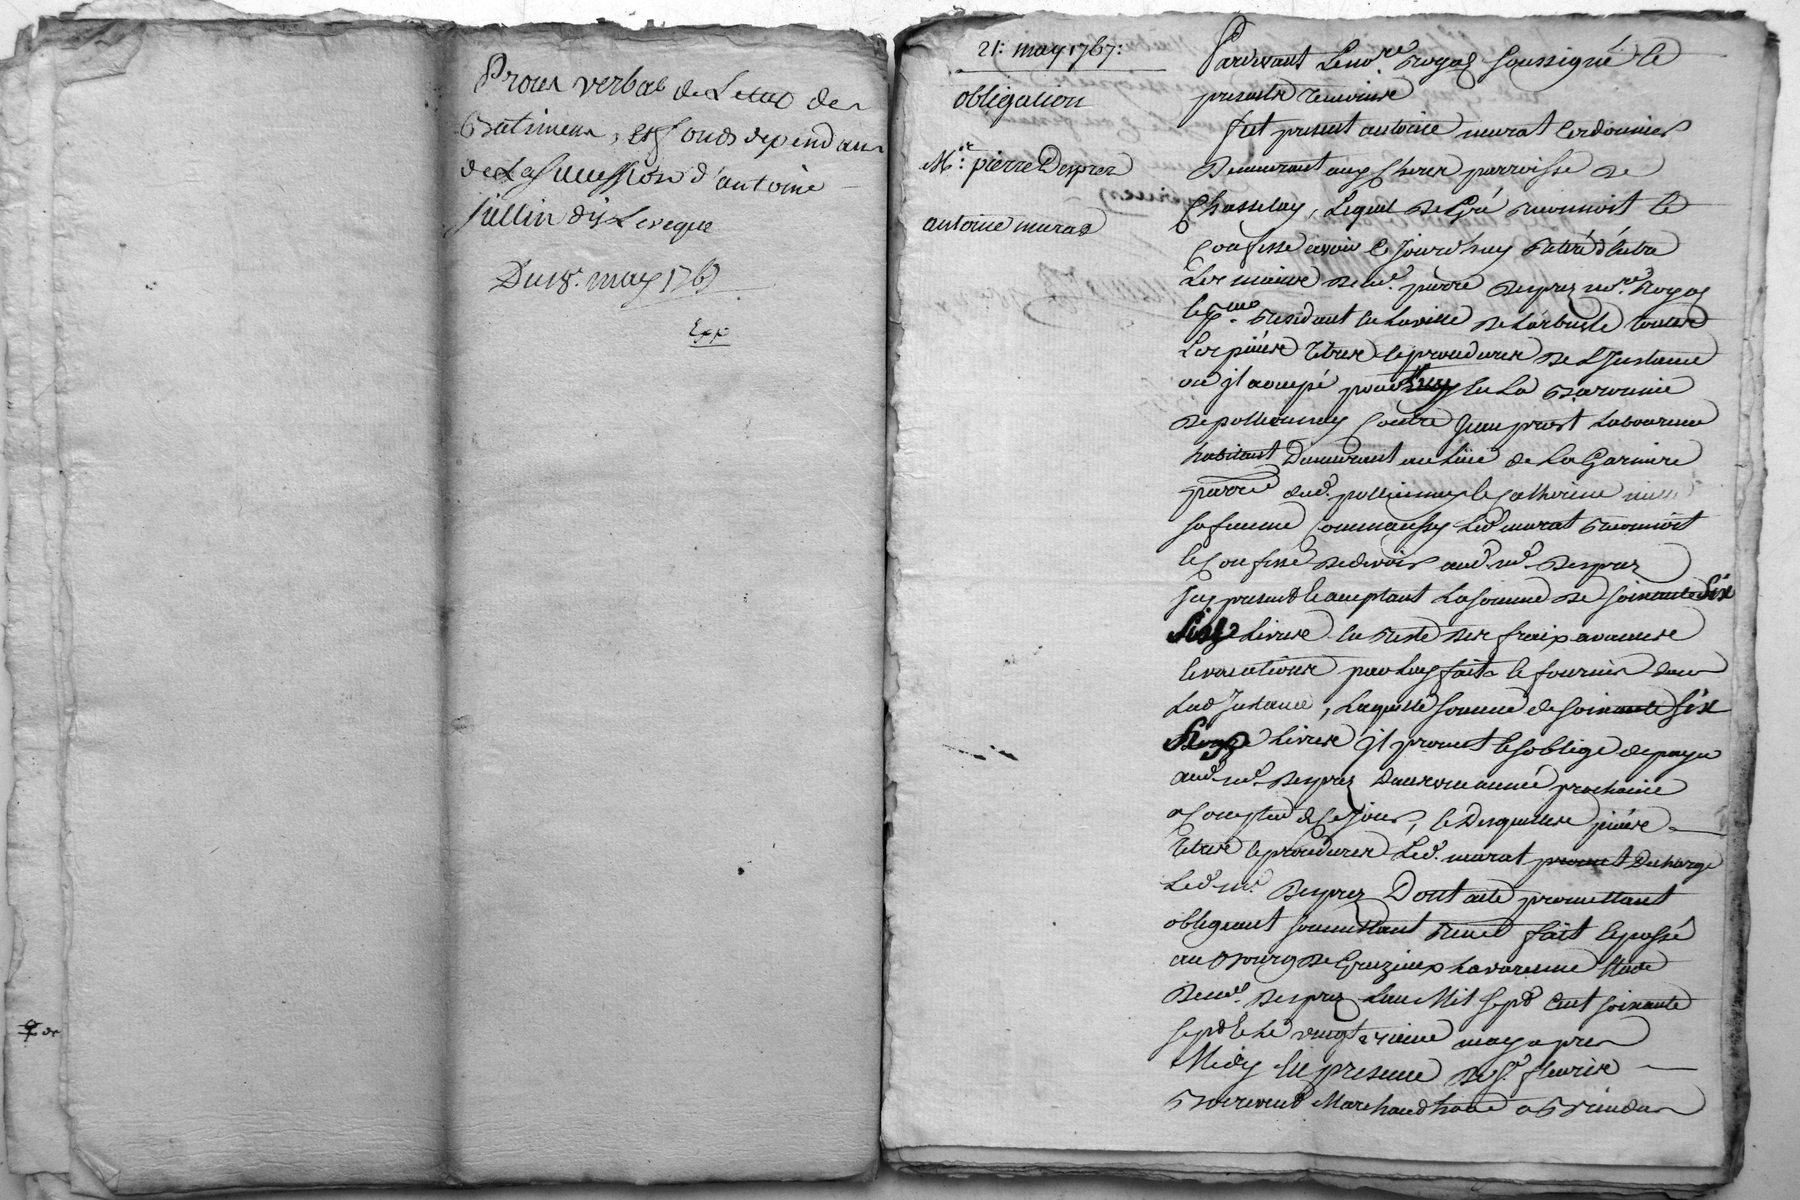 Proces verbal de Letat des
Batimens, et fonds dependans
de La Succession d'antoine
jullin dit Leveque
Du 18e. may 1767
Exp
21: may 1767:
obligation
Me: pierre Desprez
antoine murat
Pardevant Le nore. Royal Soussigné et
presents temoins
fut present antoine murat Cordonnier
Demeurant aux Cheres parroisse de
Chasselay, Lequel de Gré reconnoit et
Confesse avoir ce jourd'huy retiré d'entre
Les mains de me. pierre Desprez nore. Royal
residant en La ville de Larbresle toutes
Les pieces titres et procedures de L'Instance
ou jl a occupé pour Luy en La Baronnie
de pollionnay Contre Jean Laboureur
habitant Demeurant au Lieu de La Garnire
parroe. dud. pollionnay et Catherine
sa femme Comm'aussy Led. murat reconnoit
et Confesse de devoir aud. me. Desprez
jcy present et acceptant La somme de soixante Six
Livres en reste des fraix avances
et vacations par Luy faits et fournies dans
Lad. Instance, Laquelle somme de soixante six
Livres jl promet et s'oblige de payer
aud. me. Desprez Dans une année prochaine
a Compter de Ce jour, et Desquelles pieces
titres et procedures Led. murat promet Decharge
Led. me. Desprez Dont acte promettant
obligeant soumettant renet. fait et passé
au Bourg de Grezieux Lavarenne Etude
Dud. me. Desprez L'an Mil sept Cent soixante
sept et Le vingt unieme may apres
Midy En presence de sr. fleurire
Marchand hote a Brindas